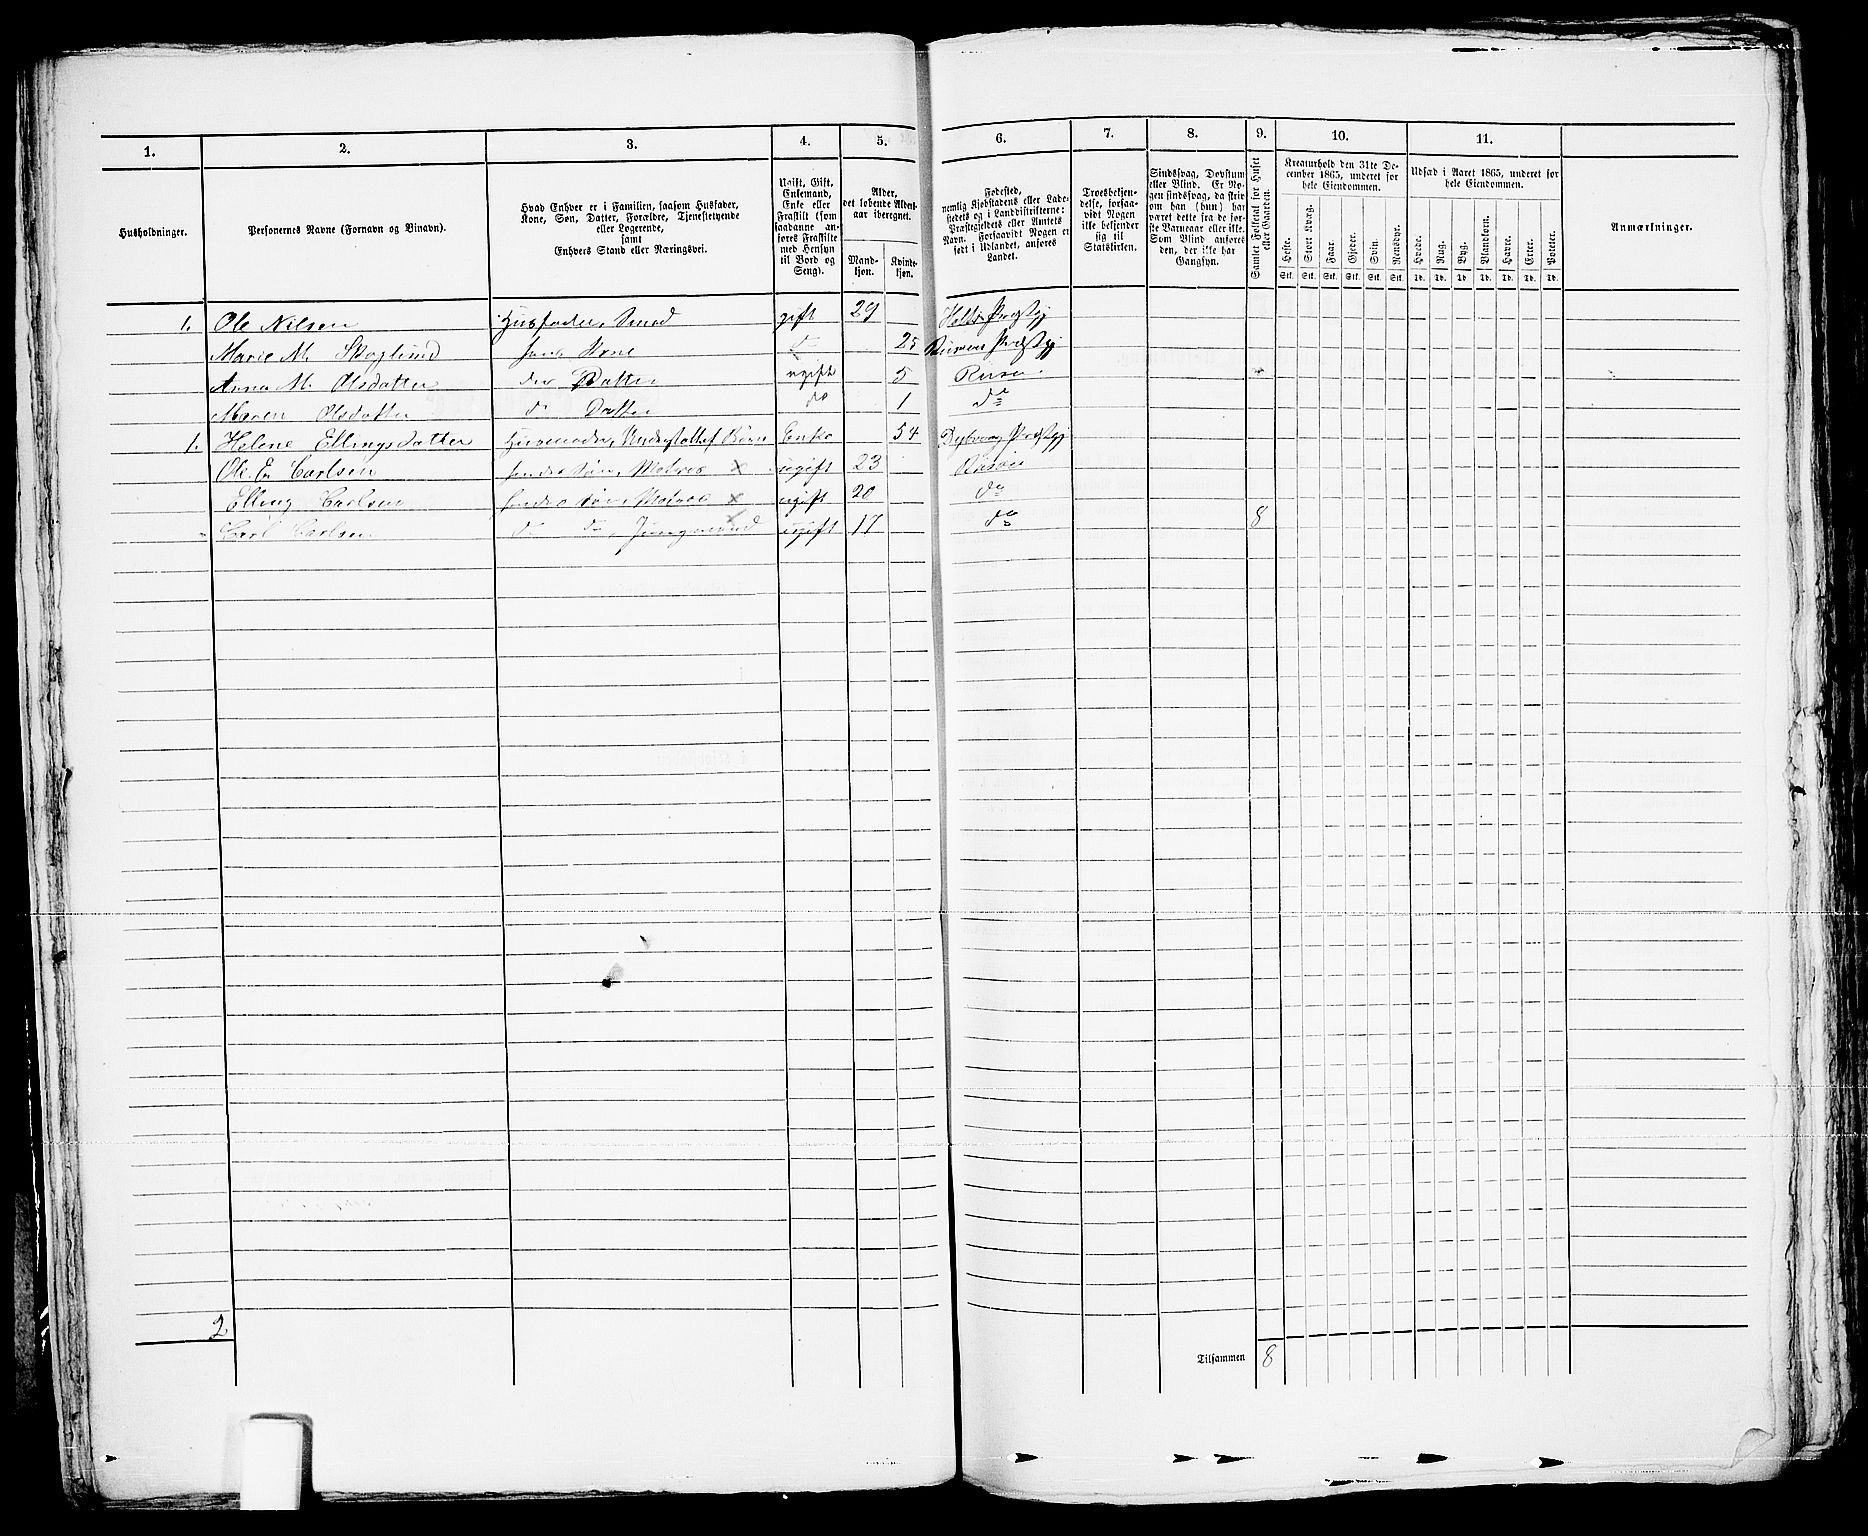 1. 2. 3. 4. 5. 6. 7. 8. 9. 10. 11.
Husholdninger.
Personernes Navne (Fornavn og Binavn).
Hvad Enhver er i Familien, saasom Husfader, Kone, Søn, Datter, Forældre, Tjenestetyende eller Logerende, samt Enhvers Stand eller Næringsvei.
Ugift, Gift, Enkemand, Enke eller Fraskilt (som saadanne anføres Fraskilte med Hensyn til Bord og Seng).
Alder, det løbende Alders-aar iberegnet.
Mand-kjøn. Kvinde-kjøn.
Fødested, nemlig Kjøbstadens eller Ladestedets og i Landdistrikterne: Præstegjeldets eller Amtets Navn. Forsaavidt Nogen er født i Udlandet, anføres Landet.
Troesbekjendelse, forsaavidt Nogen ikke bekjender sig til Statskirken.
Sindssvag, Døvstum eller Blind. Er Nogen sindssvag, da skrives om han (hun) har været dette fra de første Barneaar eller ikke. Som Blind anføres den, der ikke har Gangsyn.
Samlet Folketal for Huset eller Gaarden.
Kreaturhold den 31te December 1865, underet for hele Eiendommen.
Heste. Stort Kvæg. Faar. Gjeder. Svin. Rensdyr.
Stk. Stk. Stk. Stk. Stk. Stk.
Udsæd i Aaret 1865, underet for hele Eiendommen.
Hvede. Rug. Byg. Blandkorn. Havre. Erter. Poteter.
Td. Td. Td. Td. Td. Td. Td.
Anmærkninger.
1. Ole Nilsen Husfader, Smed gift 29 Holts Præstgj
Marie M. Skoglund hans Kone do 25 Præstgj
Anna M. Olsdatter des Datter ugift 5
Maren Olsdatter do Datter do 1 do
1. Helene Ellingsdatter Husmoder, Understøttet Børn Enke 54 Dybvaag Præstgj
Ole En Carlsen hendes Søn, Matros x ugift 23 Risøer
Elling Carlsen hendes Søn, Matros x ugift 20 do
Carl Carlsen do do, Jungmand ugift 17 do 8
2
Tilsammen 8